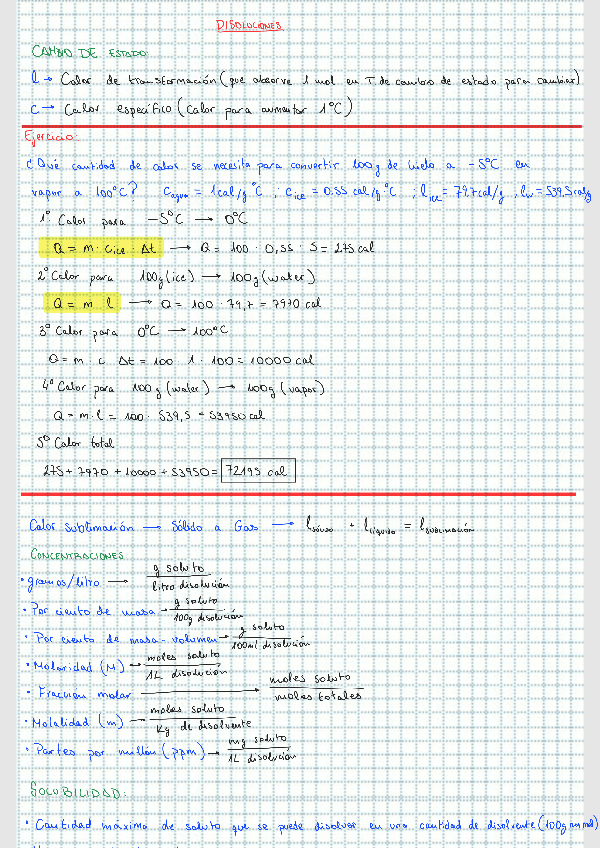 DISOLUCIONES
CAMBIO DE ESTADO:
l → Calor de transformación (que absorve 1 mol en T de cambio de estado para cambiar)
c → Calor específico (Calor para aumentar 1°C)
Ejercicio:
¿Qué cantidad de calor se necesita para convertir 100g de hielo a -5°C en
vapor a 100°C? Cagua = 1cal/g °C ; Cice = 0.55 cal/g °C ; lice = 79.7cal/g , lw = 539.5cal/g
1º Calor para -5°C → 0°C
Q = m · Cice · Δt → Q = 100 · 0,55 · 5 = 275 cal
2º Calor para 100g (ice) → 100g (water)
Q = m l → Q = 100 · 79,7 = 7970 cal
3º Calor para 0°C → 100°C
Q = m · c Δt = 100 · 1 · 100 = 10000 cal
4º Calor para 100g (water) → 100g (vapor)
Q = m · l = 100 · 539,5 = 53950 cal
5º Calor total
275 + 7970 + 10000 + 53950 = 72195 cal
Calor sublimación → Sólido a Gas → lsólido + llíquido = lsublimación
CONCENTRACIONES
· gramos/litro → g soluto
litro disolución
· Por ciento de masa → g soluto
100g disolución
· Por ciento de masa-volumen → g soluto
100ml disolución
· Molaridad (M) → moles soluto
1L disolución
· Fraccion molar → moles soluto
moles totales
· Molalidad (m) → moles soluto
Kg de disolvente
· Partes por millón (ppm) → mg soluto
1L disolución
SOLUBILIDAD:
· Cantidad máxima de soluto que se puede disolver en una cantidad de disolvente (100g